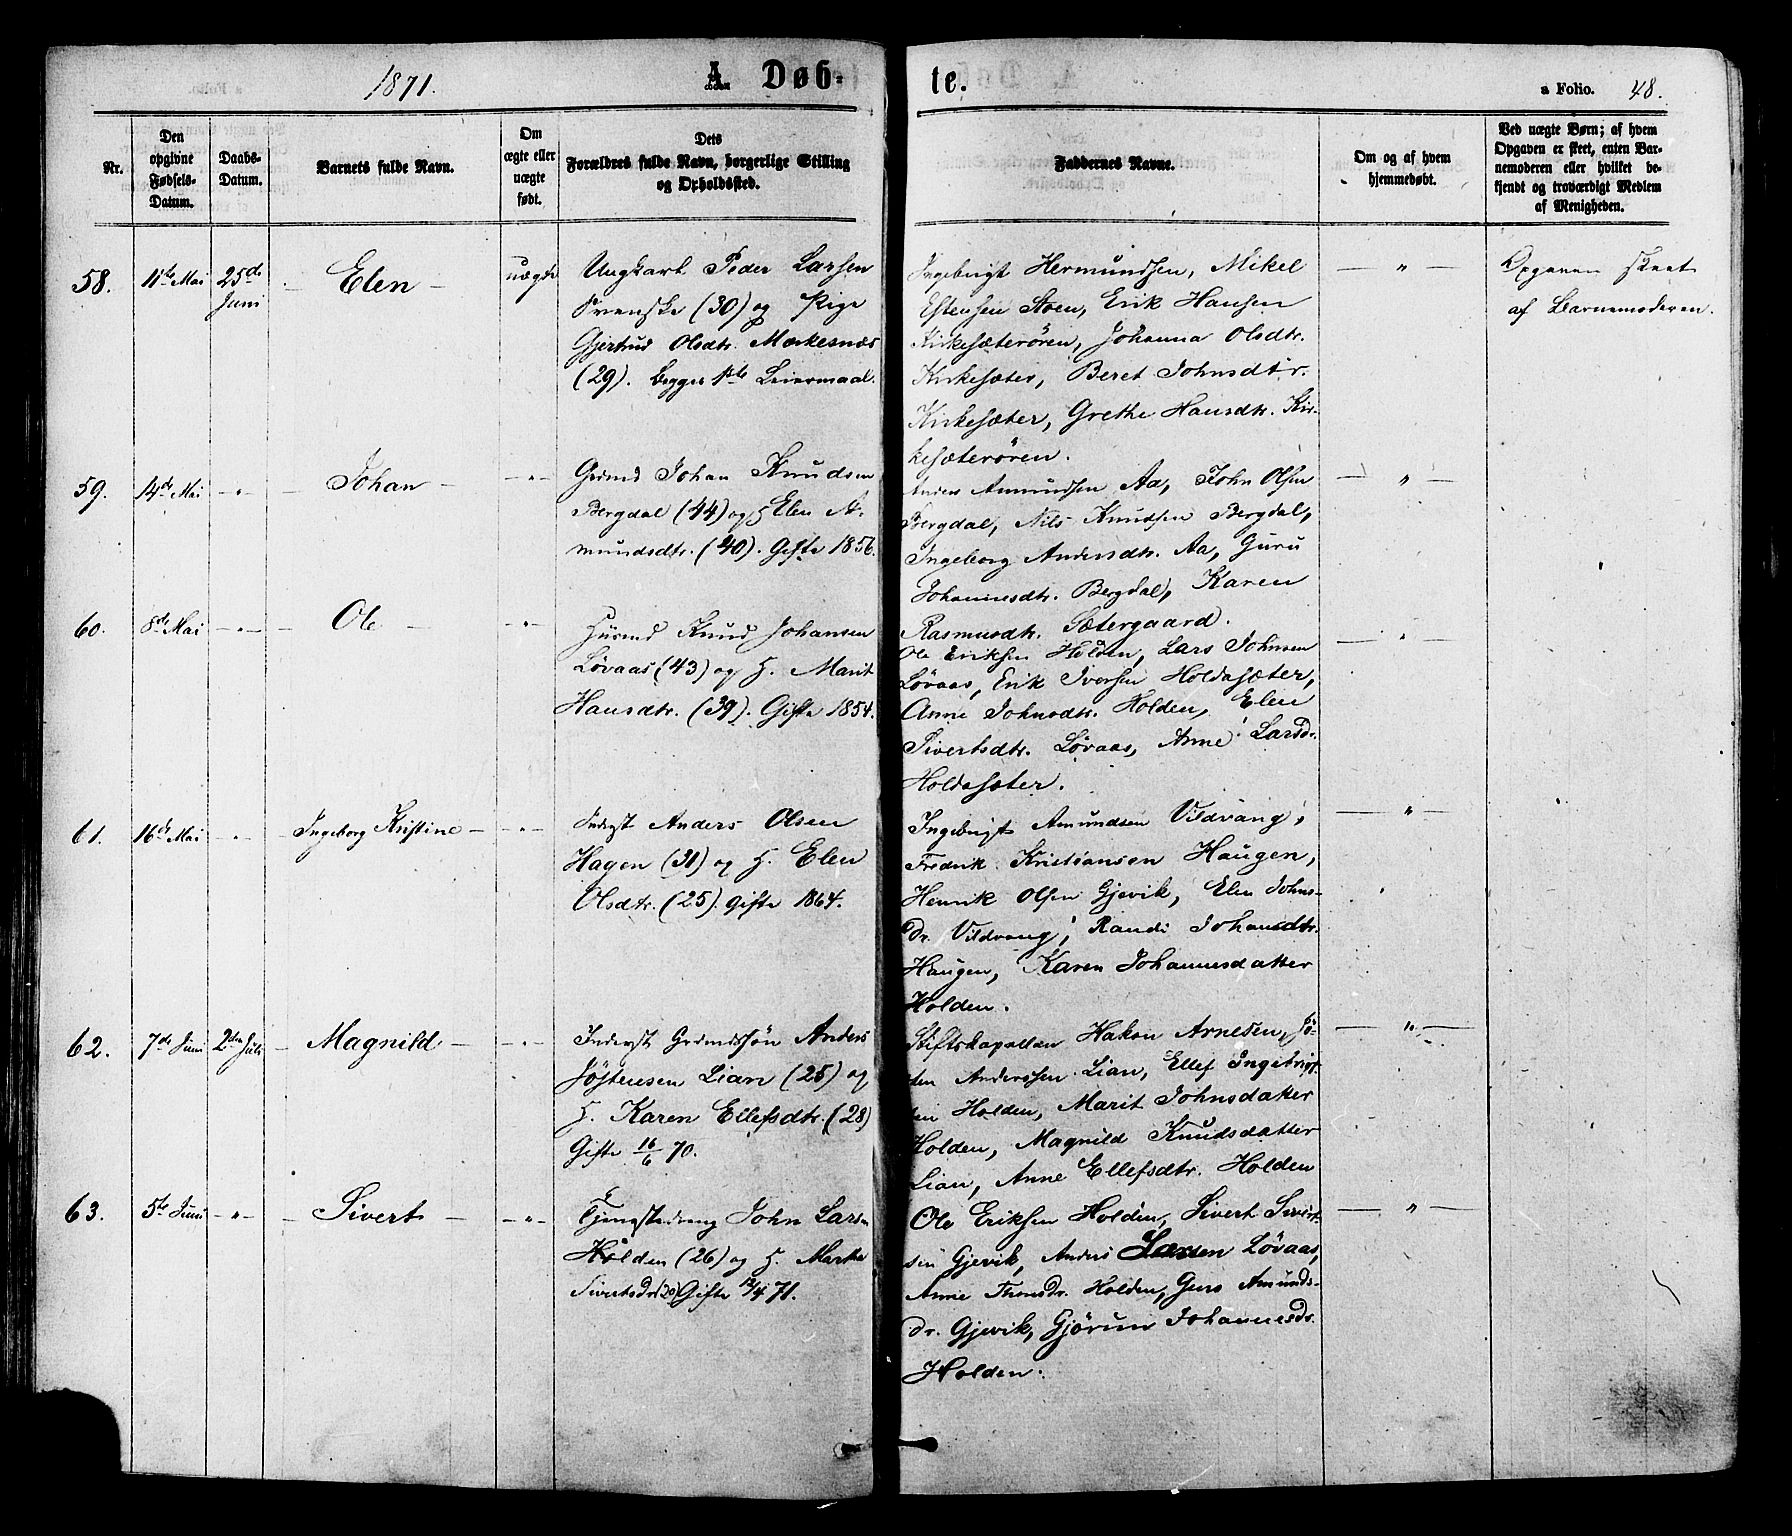 1871.
A. Døb-
te.
a Folio. 48.
Nr.
Den opgivne Fødsels-Datum.
Daabs-Datum.
Barnets fulde Navn.
Om ægte eller uægte født.
Dets Forældres fulde Navn, borgerlige Stilling og Opholdssted.
Faddernes Navne.
Om og af hvem hjemmedøbt.
Ved uægte Børn; af hvem Opgaven er skeet, enten Barnemoderen eller hvilket bekjendt og troværdigt Medlem af Menigheden.
58. 11te Mai 25de Juni Elen uægte
Ungkarl Peder Larsen
Svenske (30) og Pige
Gjertrud Olsdtr. Mærkesnæs
(29). begges 1ste Leiermaal.
Ingebrigt Hermundsen, Mikel
Estensen Stoen, Erik Hansen
Kirkesæterören, Johanna Olsdtr.
Kirkesæter, Beret Johnsdtr.
Kirkesæter, Grethe Hansdtr. Kir-
kesæterören.
— " —
Opgaven skeet
af Barnemoderen.
59. 14de Mai -"- Johan -"-
Grdmd Johan Knudsen
Bergdal (44) og H Elen A-
mundsdtr. (40). Gifte 1856.
Anders Amundsen Aa, John Olsen
Bergdal, Nils Knudsen Bergdal,
Ingeborg Andersdtr. Aa, Guru
Johannesdtr. Bergdal, Karen
Rasmusdtr. Sætergaard.
— " —
60. 8de Mai -"- Ole -"-
Husmd Knud Johansen
Løvaas (43) og H. Marit
Hansdtr. (39). Gifte 1854.
Ole Eriksen Holden, Lars Johnsen
Løvaas, Erik Iversen Holdasæter,
Anne Johnsdtr. Holden, Elen
Sivertsdtr. Løvaas, Anne Larsd.
Holdasæter.
— " —
61. 16de Mai -"- Ingeborg Kristine -"-
Inderst Anders Olsen
Hagen (31) og H. Elen
Olsdtr. (25). gifte 1864.
Ingebrigt Amundsen Vildvang,
Fredrik Kristiansen Haugen,
Henrik Olsen Gjevik, Elen Johns-
dr. Vildvang, Randi Johansdtr.
Haugen, Karen Johannesdatter
Holden.
— " —
62. 7de Juni 2den Juli Magnild -"-
Inderst Grdmdssön Anders
Jöstensen Lian (25) og
H. Karen Ellefsdtr. (28)
Gifte 16/6 70.
Stiftskapellan Hakon Arnesen, Jö-
sten Anderssen Lian, Ellef Ingebrigt-
sen Holden, Marit Johnsdatter
Holden, Magnild Knudsdatter
Lian, Anne Ellefsdtr. Holden
— " —
63. 5te Juni -"- Sivert -"-
Tjenestedreng John Larsen
Holden (26) og H. Marthe
Sivertsdr (20) Gifte 12/4 71.
Ole Eriksen Holden, Sivert Sivert-
sen Gjevik, Anders Larsen Løvaas,
Anne Thoresdr. Holden, Guro Amunds-
dr. Gjevik, Gjörun Johannesdr.
Holden.
— " —